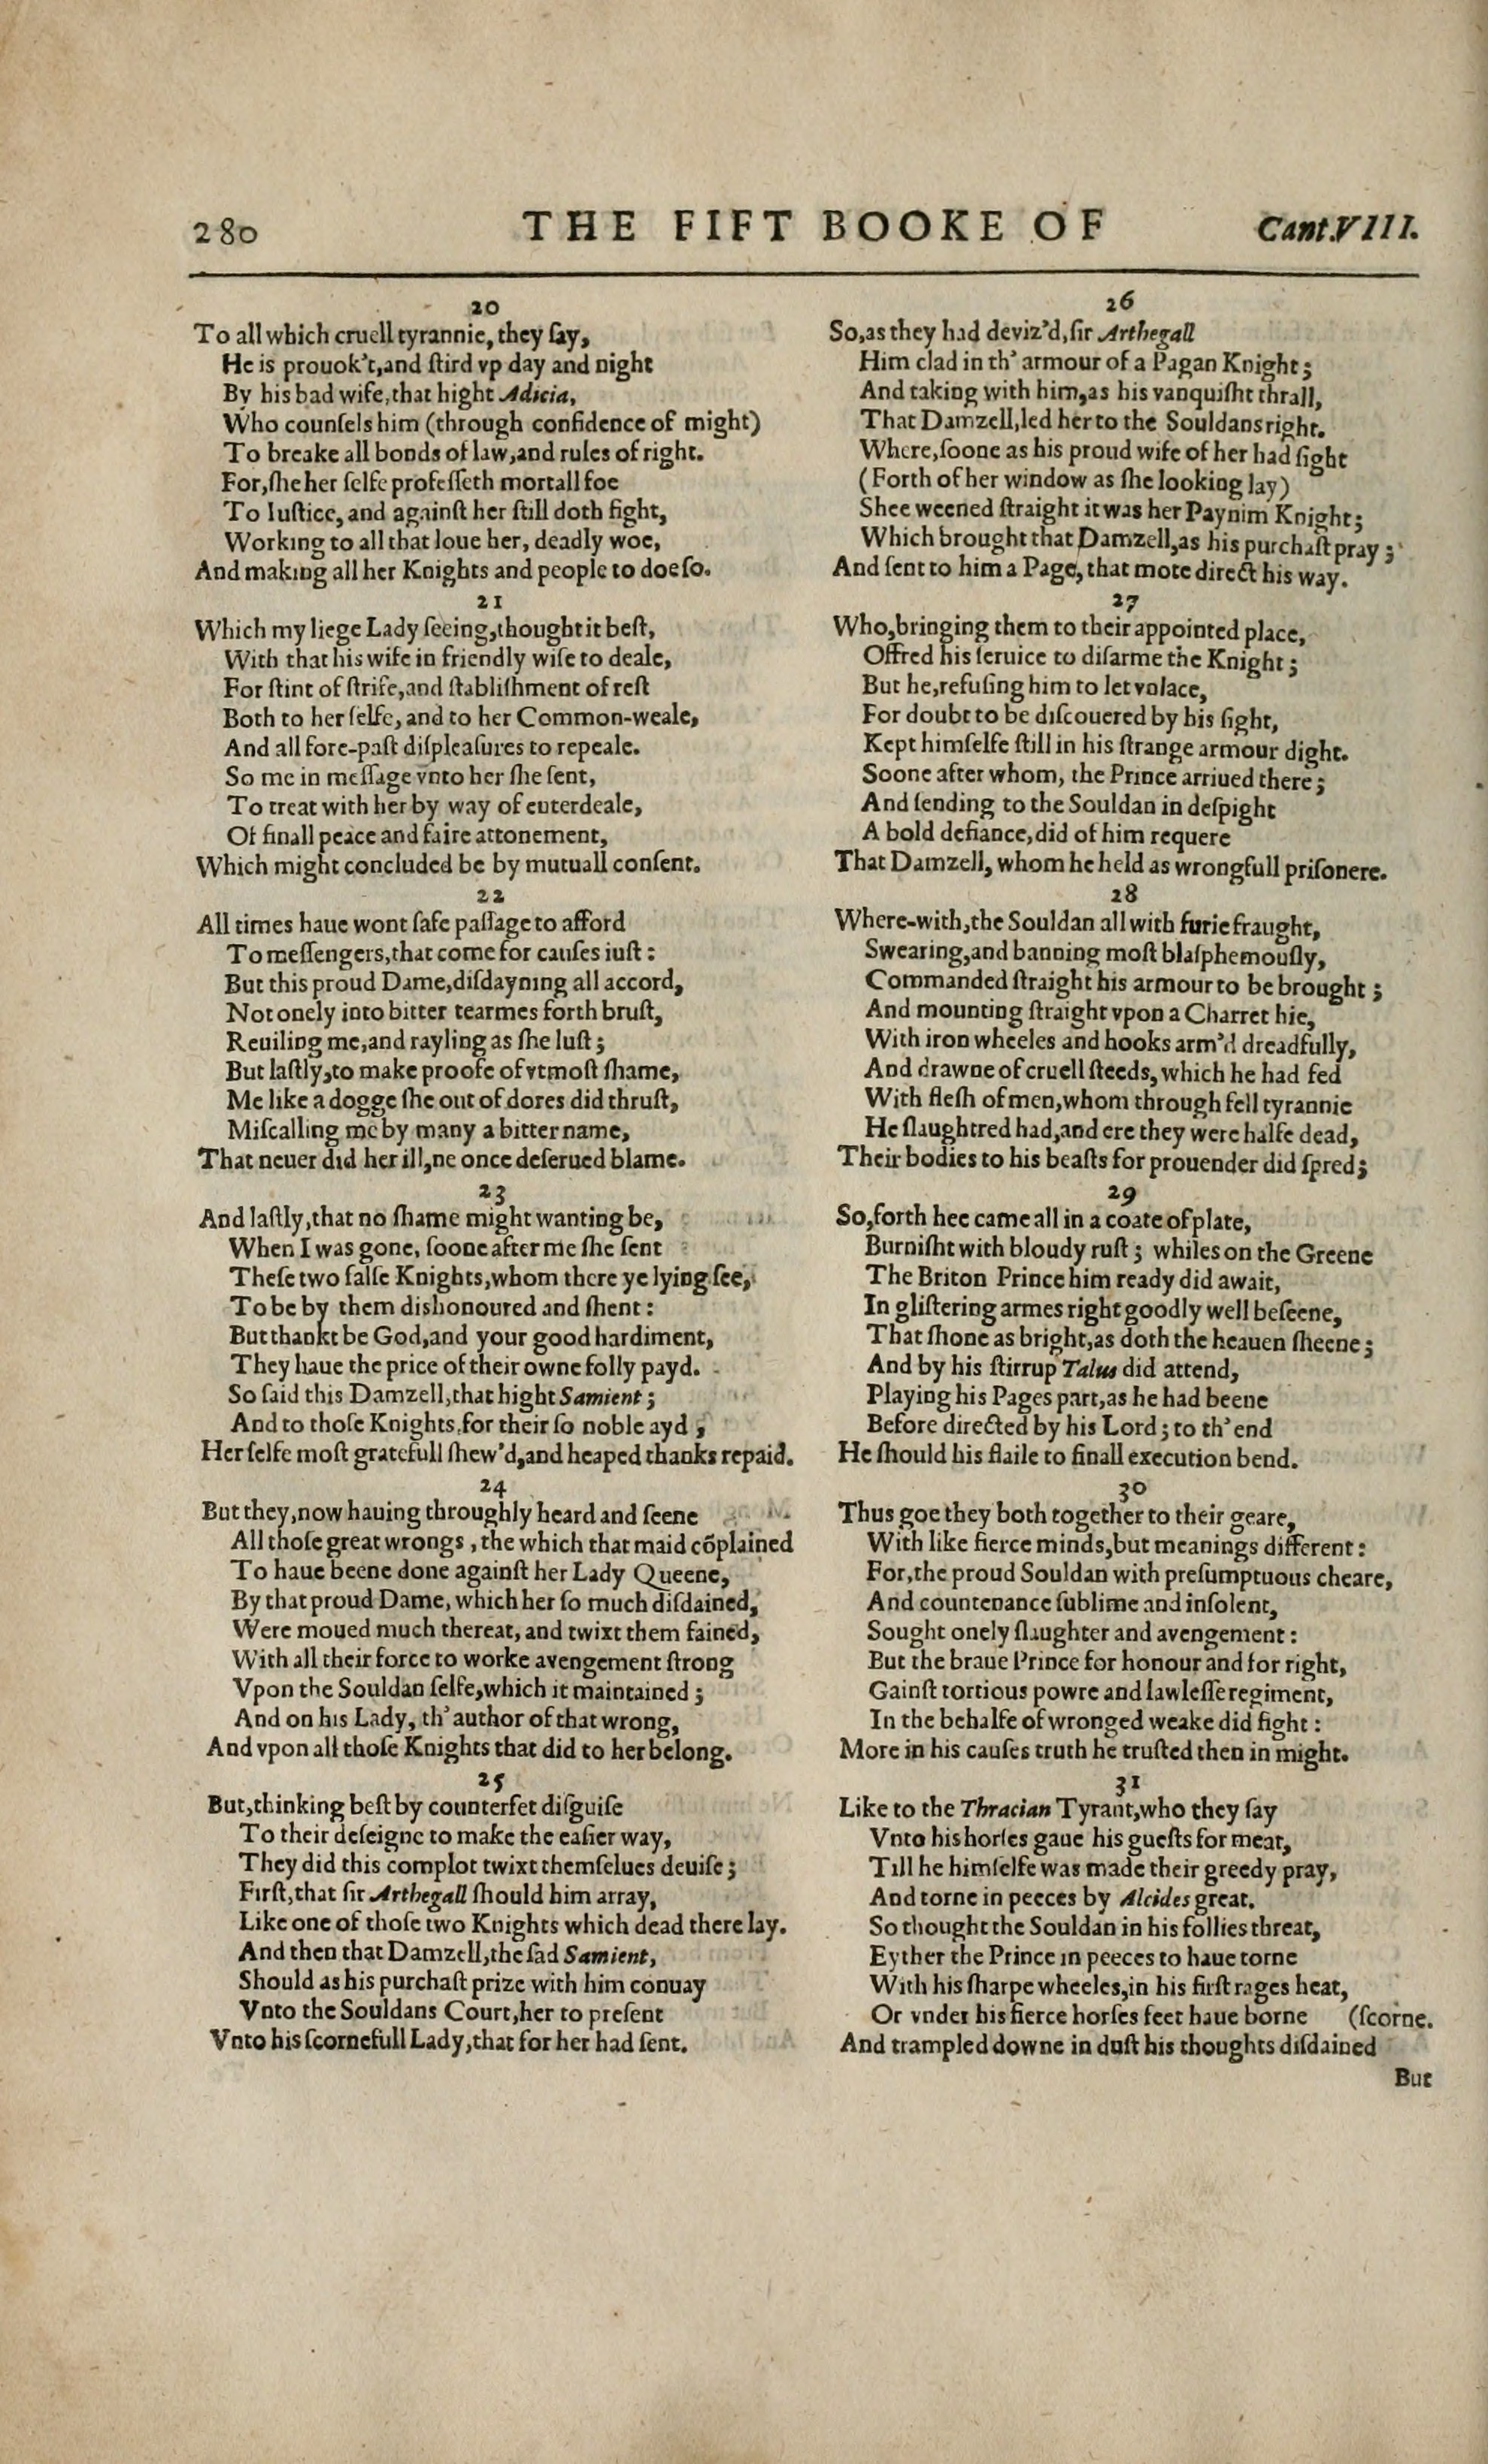 280
THE FIFT BOOKE OF
Cant.VIII.
20
To all which cruell tyrannie, they ſay,
He is prouok't,and ſtird vp day and night
By his bad wife,that hight Adicia,
Who counſels him (through confidence of might)
To breake all bonds of law,and rules of right.
For,ſhe her ſelfe profeſſeth mortall foe
To Iuſtice, and againſt her ſtill doth fight,
Working to all that loue her, deadly woe,
And making all her Knights and people to doe ſo.
21
Which my liege Lady ſeeing,thought it beſt,
With that his wife in friendly wiſe to deale,
For ſtint of ſtrife,and ſtabliſhment of reſt
Both to her ſelfe, and to her Common-weale,
And all fore-paſt diſpleaſures to repeale.
So me in meſſage vnto her ſhe ſent,
To treat with her by way of enterdeale,
Of finall peace and faire attonement,
Which might concluded be by mutuall conſent.
22
All times haue wont ſafe paſſage to afford
To meſſengers,that come for cauſes iuſt:
But this proud Dame,diſdayning all accord,
Not onely into bitter tearmes forth bruſt,
Reuiling me,and rayling as ſhe luſt;
But laſtly,to make proofe of vtmoſt ſhame,
Me like a dogge ſhe out of dores did thruſt,
Miſcalling me by many a bitter name,
That neuer did her ill,ne once deſerued blame.
23
And laſtly,that no ſhame might wanting be,
When I was gone, ſoone after me ſhe ſent
Theſe two falſe Knights,whom there ye lying ſee,
To be by them dishonoured and ſhent:
But thankt be God,and your good hardiment,
They haue the price of their owne folly payd.
So ſaid this Damzell,that hight Samient;
And to thoſe Knights,for their ſo noble ayd,
Her ſelfe moſt gratefull ſhew'd,and heaped thanks repaid.
24
But they,now hauing throughly heard and ſeene
All thoſe great wrongs, the which that maid cõplained
To haue beene done againſt her Lady Queene,
By that proud Dame, which her ſo much diſdained,
Were moued much thereat, and twixt them fained,
With all their force to worke avengement ſtrong
Vpon the Souldan ſelfe,which it maintained;
And on his Lady, th' author of that wrong,
And vpon all thoſe Knights that did to her belong.
25
But,thinking beſt by counterfet diſguiſe
To their deſeigne to make the eaſier way,
They did this complot twixt themſelues deuiſe;
Firſt,that ſir Arthegall ſhould him array,
Like one of thoſe two Knights which dead there lay.
And then that Damzell,the ſad Samient,
Should as his purchaſt prize with him conuay
Vnto the Souldans Court,her to preſent
Vnto his ſcornefull Lady,that for her had ſent.
26
So,as they had deviz'd,ſir Arthegall
Him clad in th' armour of a Pagan Knight;
And taking with him,as his vanquiſht thrall,
That Damzell,led her to the Souldans right.
Where,ſoone as his proud wife of her had ſight
(Forth of her window as ſhe looking lay)
Shee weened ſtraight it was her Paynim Knight;
Which brought that Damzell,as his purchaſt pray;
And ſent to him a Page, that mote direct his way.
27
Who,bringing them to their appointed place,
Offred his ſeruice to diſarme the Knight;
But he,refuſing him to let vnlace,
For doubt to be diſcouered by his ſight,
Kept himſelfe ſtill in his ſtrange armour dight.
Soone after whom, the Prince arriued there;
And ſending to the Souldan in deſpight
A bold defiance,did of him requere
That Damzell, whom he held as wrongfull priſonere.
28
Where-with,the Souldan all with furie fraught,
Swearing,and banning moſt blaſphemouſly,
Commanded ſtraight his armour to be brought;
And mounting ſtraight vpon a Charret hie,
With iron wheeles and hooks arm'd dreadfully,
And drawne of cruell ſteeds, which he had fed
With fleſh of men,whom through fell tyrannie
He ſlaughtred had,and ere they were halfe dead,
Their bodies to his beaſts for prouender did ſpred;
29
So,forth hee came all in a coate of plate,
Burniſht with bloudy ruſt; whiles on the Greene
The Briton Prince him ready did await,
In gliſtering armes right goodly well beſeene,
That ſhone as bright,as doth the heauen ſheene;
And by his ſtirrup Talus did attend,
Playing his Pages part,as he had beene
Before directed by his Lord; to th' end
He ſhould his flaile to finall execution bend.
30
Thus goe they both together to their geare,
With like fierce minds,but meanings different:
For,the proud Souldan with preſumptuous cheare,
And countenance ſublime and inſolent,
Sought onely ſlaughter and avengement:
But the braue Prince for honour and for right,
Gainſt tortious powre and lawleſſe regiment,
In the behalfe of wronged weake did fight:
More in his cauſes truth he truſted then in might.
31
Like to the Thracian Tyrant,who they ſay
Vnto his horſes gaue his gueſts for meat,
Till he himſelfe was made their greedy pray,
And torne in peeces by Alcides great.
So thought the Souldan in his follies threat,
Eyther the Prince in peeces to haue torne
With his ſharpe wheeles,in his firſt rages heat,
Or vnder his fierce horſes feet haue borne (ſcorne.
And trampled downe in duſt his thoughts diſdained
But